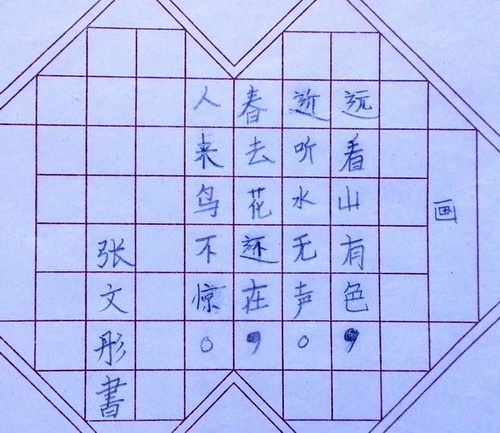 画
远看山有色，
近听水无声。
春去花还在，
人来鸟不惊。
张文彤書